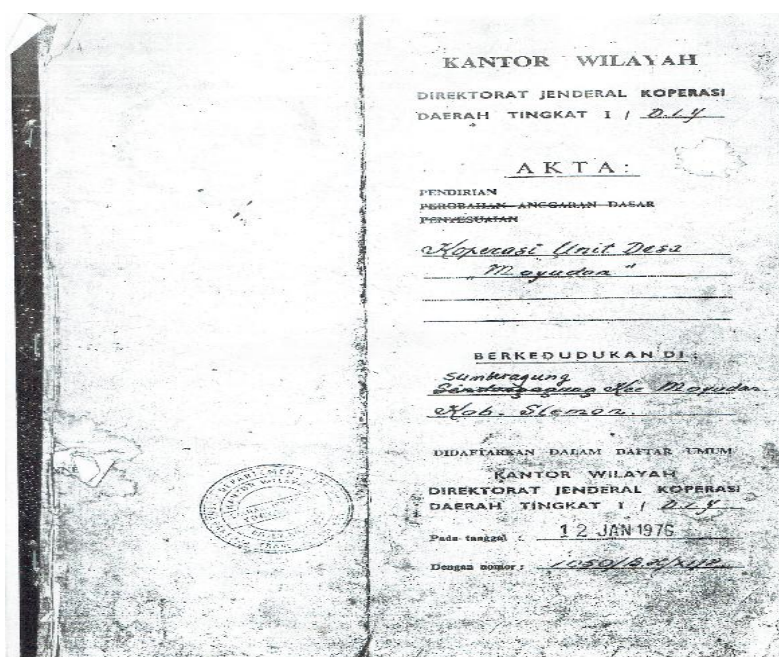 KANTOR WILAYAH
DIREKTORAT JENDERAL KOPERASI
DAERAH TINGKAT I / D.I.Y
AKTA:
PENDIRIAN
PEROBAHAN ANGGARAN DASAR
PENYESUAIAN
Koperasi Unit Desa
"Moyudan"
BERKEDUDUKAN DI :
Sumberagung
Kec Moyudan
Kab. Sleman.
DIDAFTARKAN DALAM DAFTAR UMUM
KANTOR WILAYAH
DIREKTORAT JENDERAL KOPERASI
DAERAH TINGKAT I / D.I.Y
Pada tanggal : 12 JAN 1976
Dengan nomor :
DEPARTEMEN